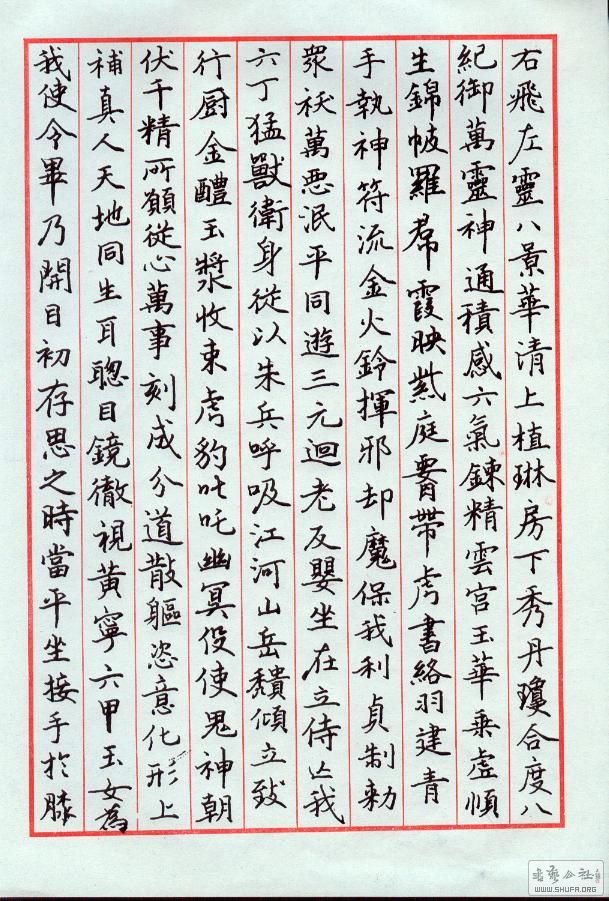 右飛左靈八景華清上植琳房下秀丹瓊合度八
紀御萬靈神通積感六氣鍊精雲宮玉華乗虛順
生錦帔羅帬霞映紫庭腰帶虎書絡羽建青
手執神符流金火鈴揮邪却魔保我利貞制勑
眾祅萬惡泯平同遊三元迴老反嬰坐在立侍亾我
六丁猛獸衛身從以朱兵呼吸江河山岳穨傾立致
行厨金醴玉漿收束虎豹叱吒幽冥役使鬼神朝
伏千精所願從心萬事刻成分道散軀恣意化形上
補真人天地同生耳聰目鏡徹視黃寧六甲玉女為
我使令畢乃開目初存思之時當平坐接手於膝
书艺公社
WWW.SHUFA.ORG